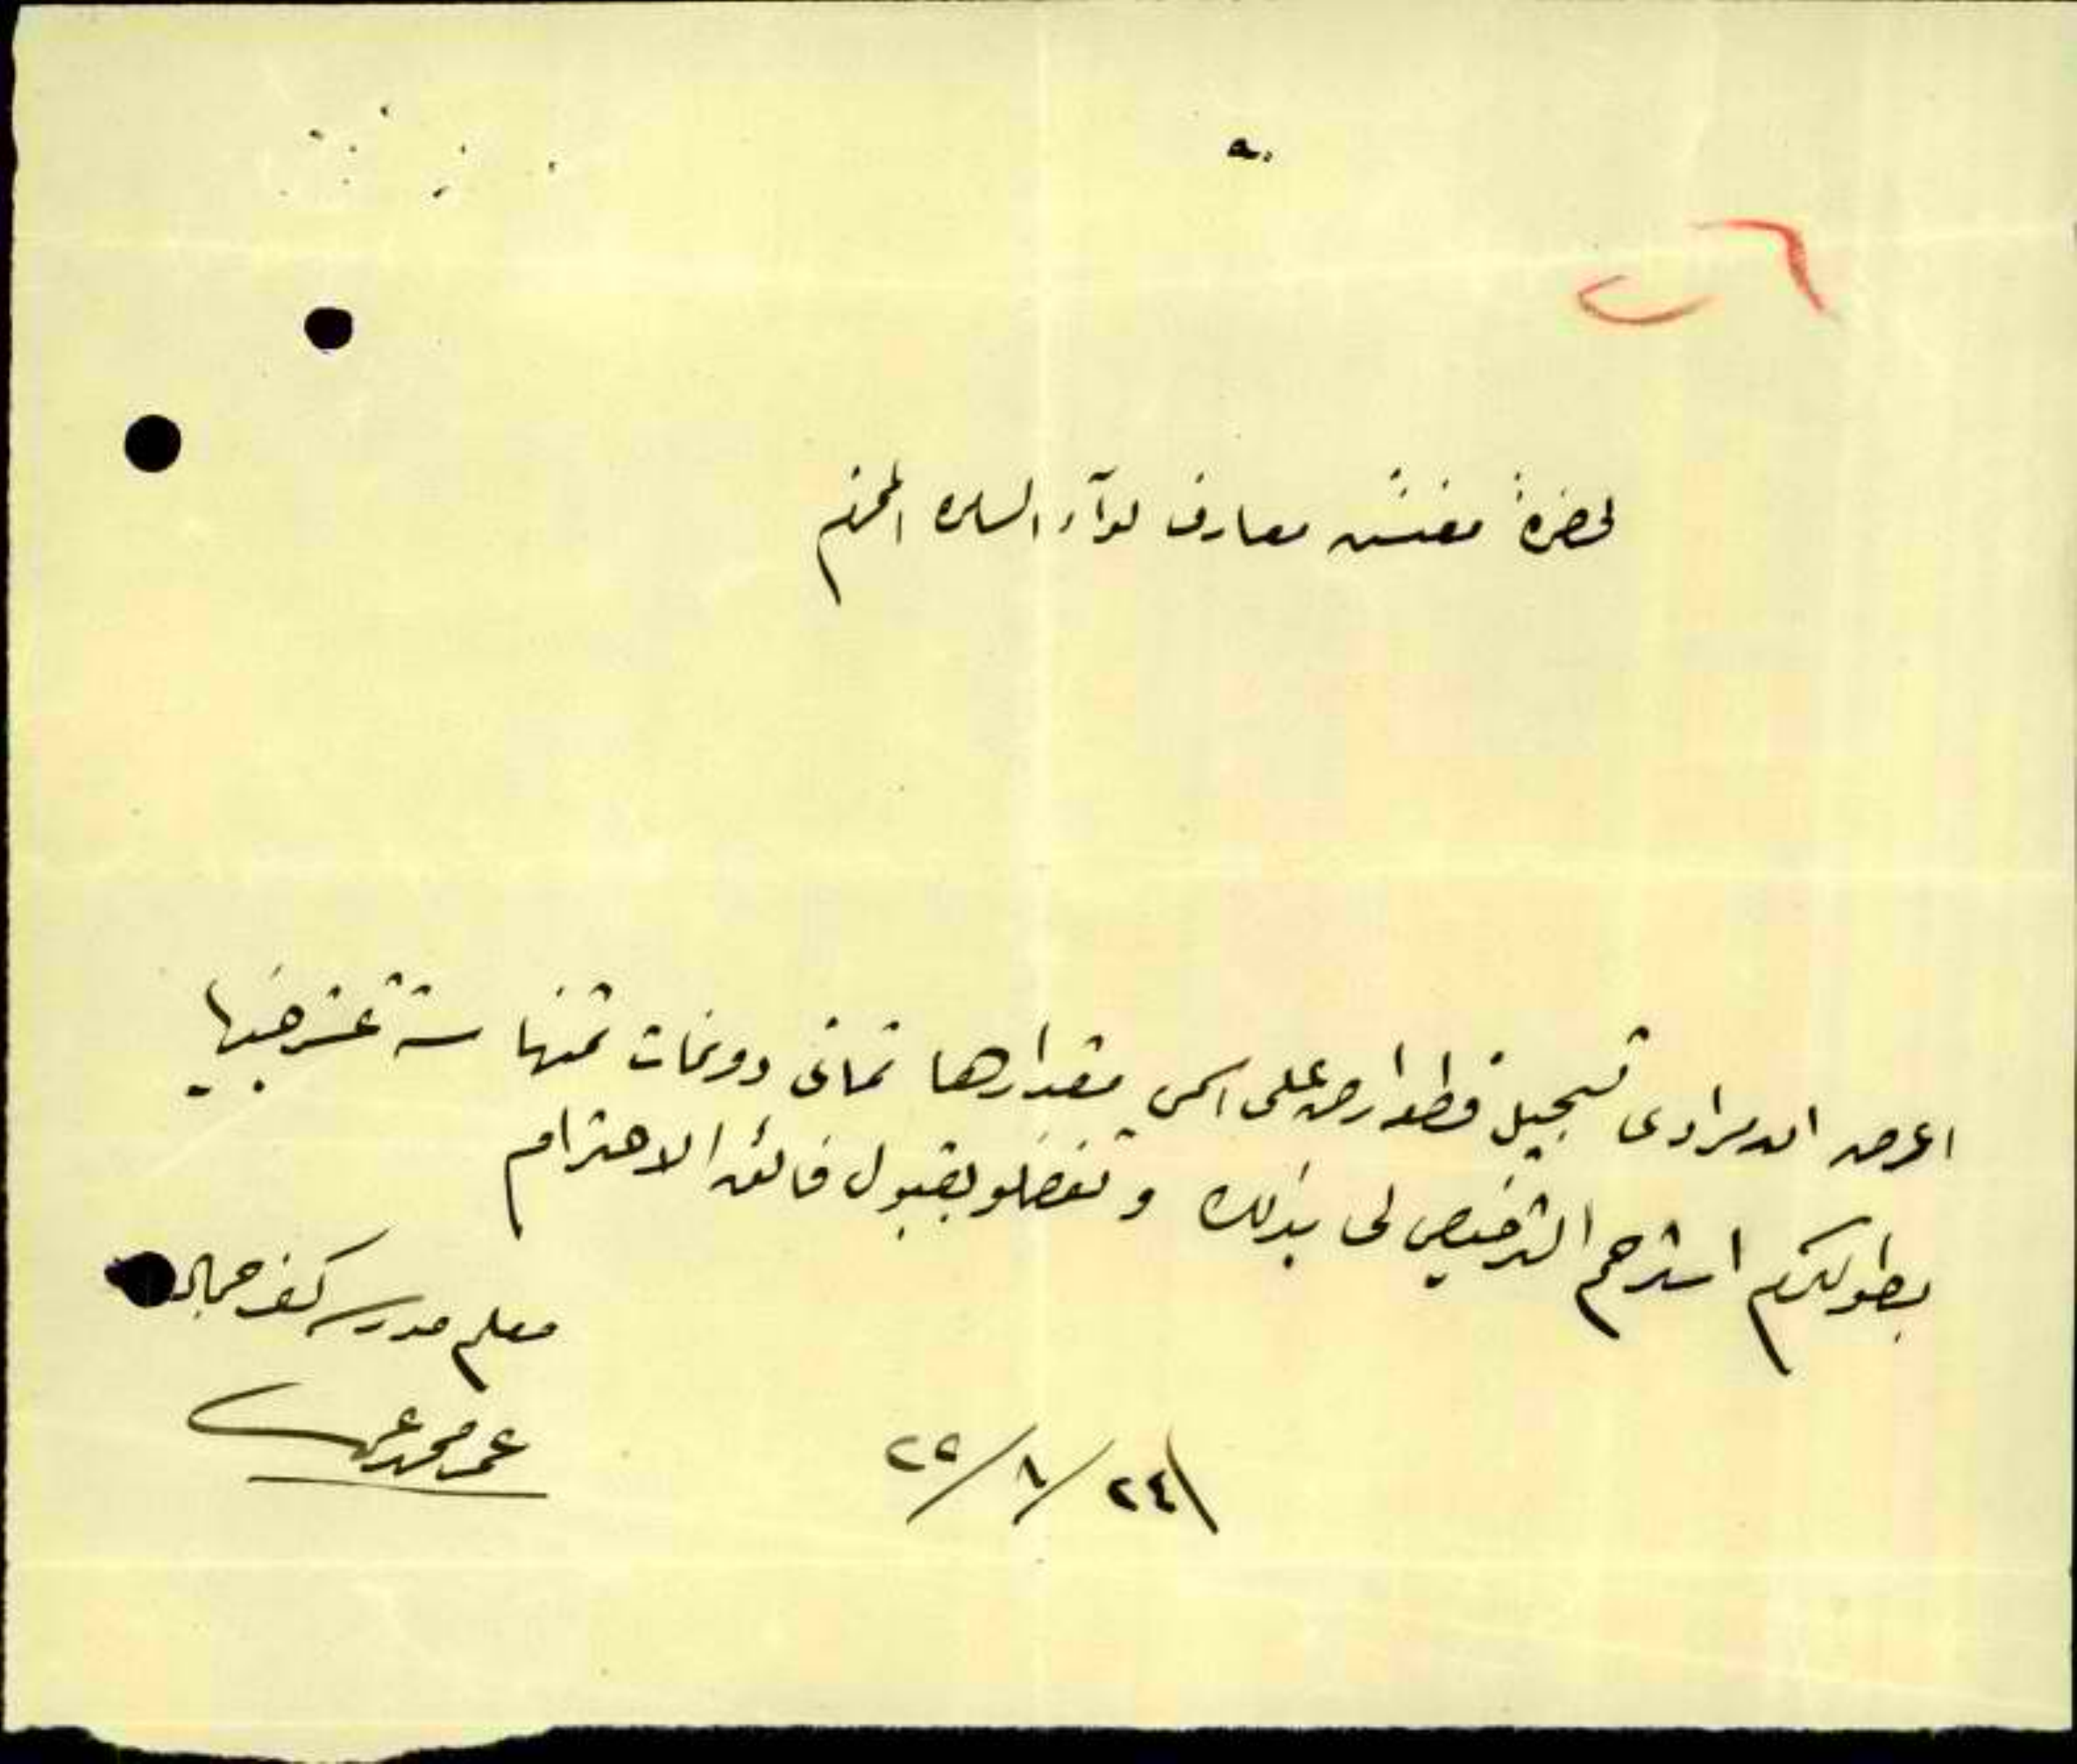 لحضرة مفتش معارف لوآء السامره المحترم
اعرض ان مرادى تسجيل قطعة ارض على اسمى مقدارها ثمانى دونمات ثمنها ستة عشر جنيها
بطولكرم استرحم الترخيص لى بذلك وتفضلو بقبول فائق الاحترام
معلم مدرسة كفر جمال
عمر محمد
٢٤/٨/٢٢